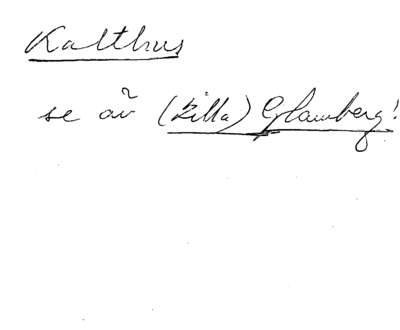 Kalthus
se äv (Lilla) Glamberg!